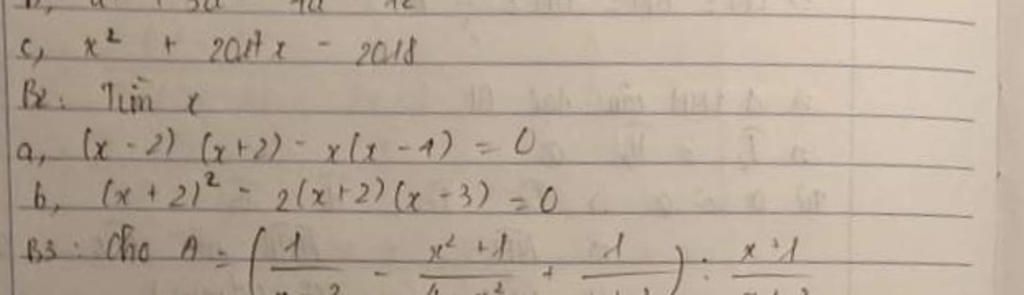 c, x² + 2017x - 2018
B2: Tìm x
a, (x - 2) (x + 2) - x(x - 1) = 0
b, (x + 2)² - 2(x + 2)(x - 3) = 0
B3: Cho A = (1 - x² + 1 + 1) : x + 1